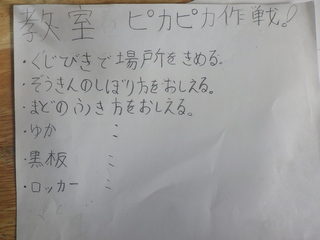 教室 ピカピカ作戦!
・くじびきで場所をきめる。
・ぞうきんのしぼり方をおしえる。
・まどのふき方をおしえる。
・ゆか 〃
・黒板 〃
・ロッカー 〃